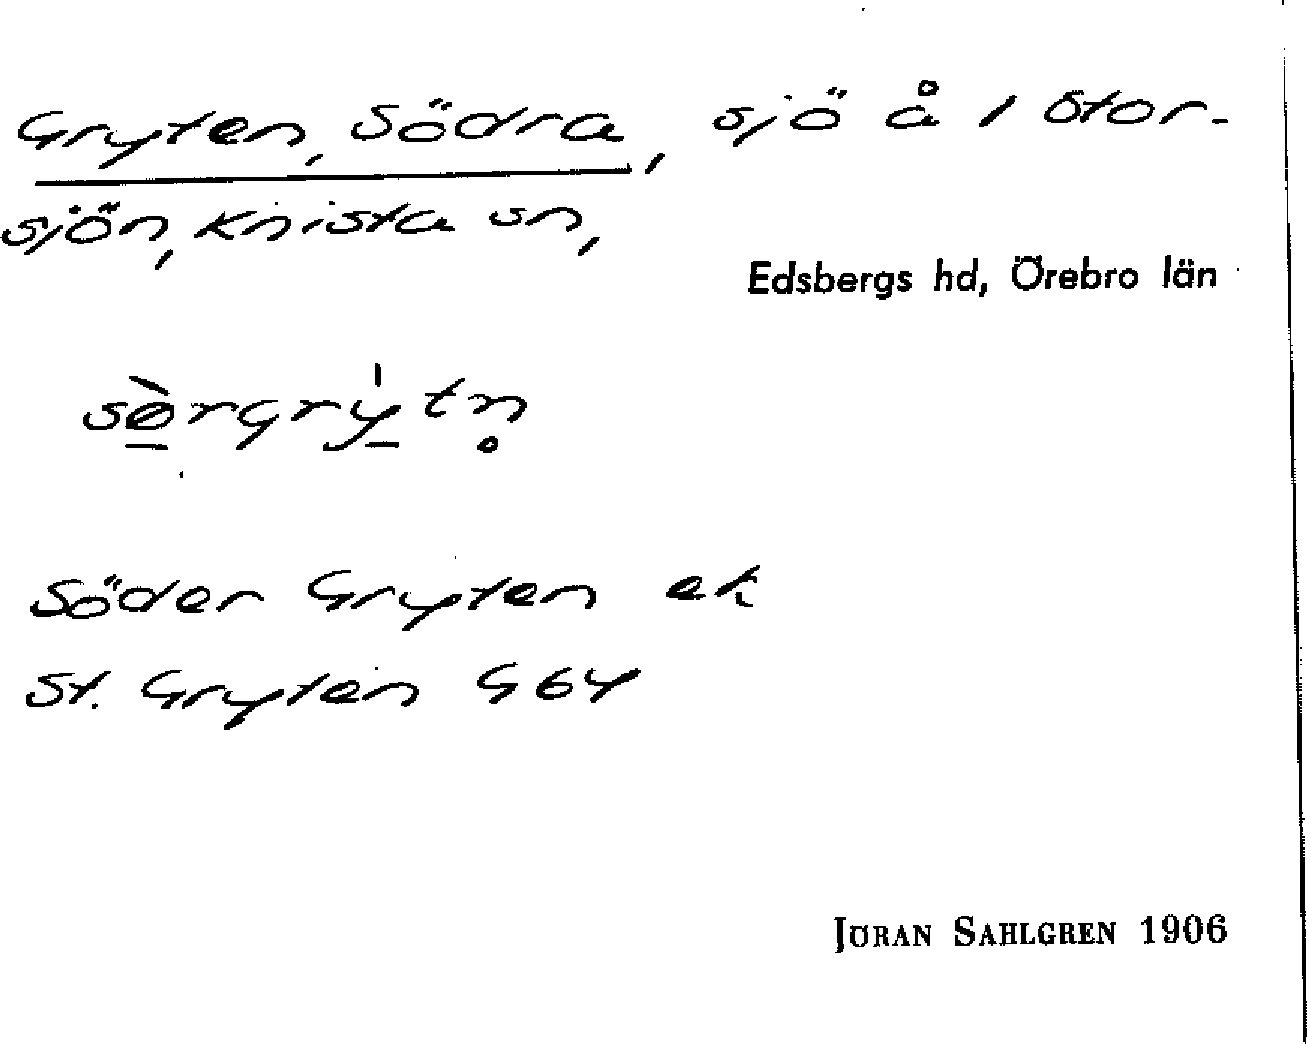 Gryten, Södra, sjö å 1 Stor-
sjön, Knista sn,
Edsbergs hd, Örebro län
sø̀rgrýtn̥
Söder Gryten ek
St. Gryten G64
JÖRAN SAHLGREN 1906